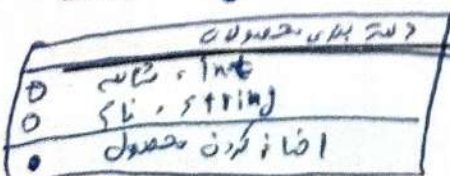 دسته بندی محصولات
شناسه : int
نام : string
اضافه کردن محصول